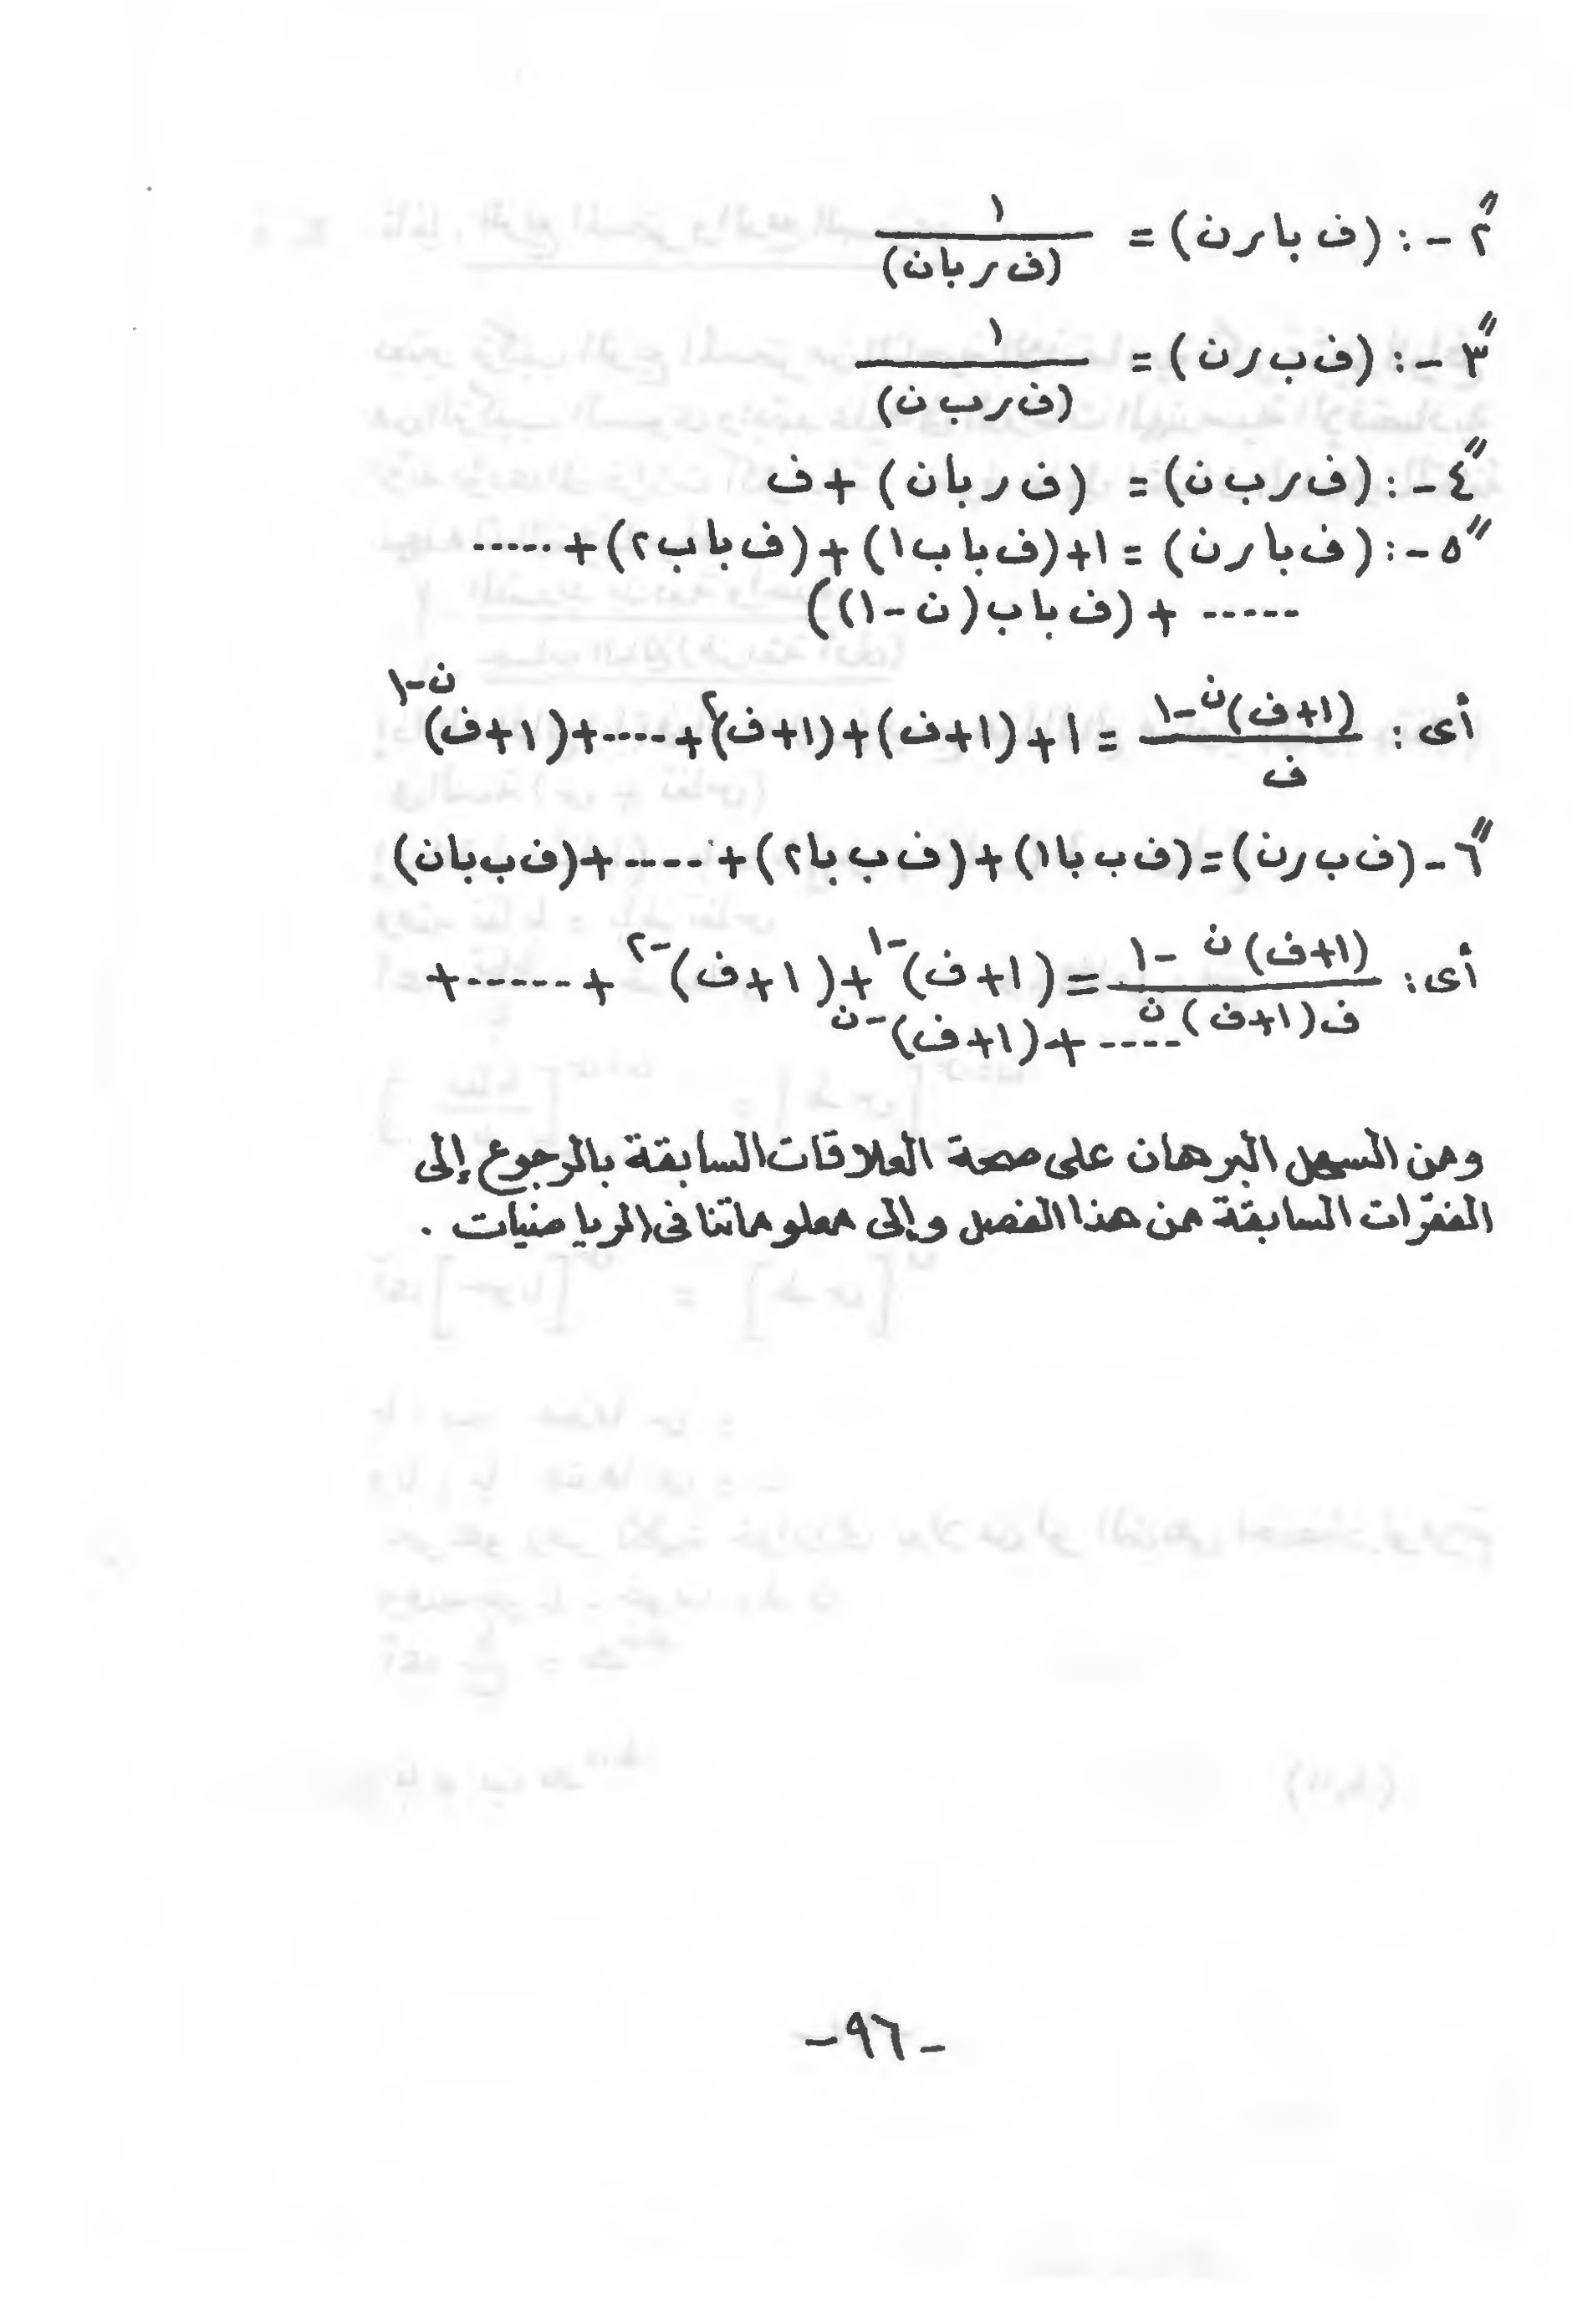 ٢ً - : (ف با ر ن) = ١ / (ف ر با ن)
٣ً - : (ف ب ر ن) = ١ / (ف ر ب ن)
٤ً - : (ف ر ب ن) = (ف ر با ن) + ف
٥ً - : (ف با ر ن) = ١ + (ف با ب ١) + (ف با ب ٢) + .....
----- + (ف با ب (ن - ١))
أى : (١+ف)^ن - ١ / ف = ١ + (١+ف) + (١+ف)^٢ + ---- + (١+ف)^ن-١
٦ً - (ف ب ر ن) = (ف ب با ١) + (ف ب با ٢) + ---- + (ف ب با ن)
أى : (١+ف)^ن - ١ / ف (١+ف)^ن = (١+ف)^-١ + (١+ف)^-٢ + ----- +
---- + (١+ف)^-ن
ومن السهل البرهان على صحة العلاقات السابقة بالرجوع إلى
الفقرات السابقة من هذا الفصل وإلى معلوماتنا فى الرياضيات .
- ٩٦ -